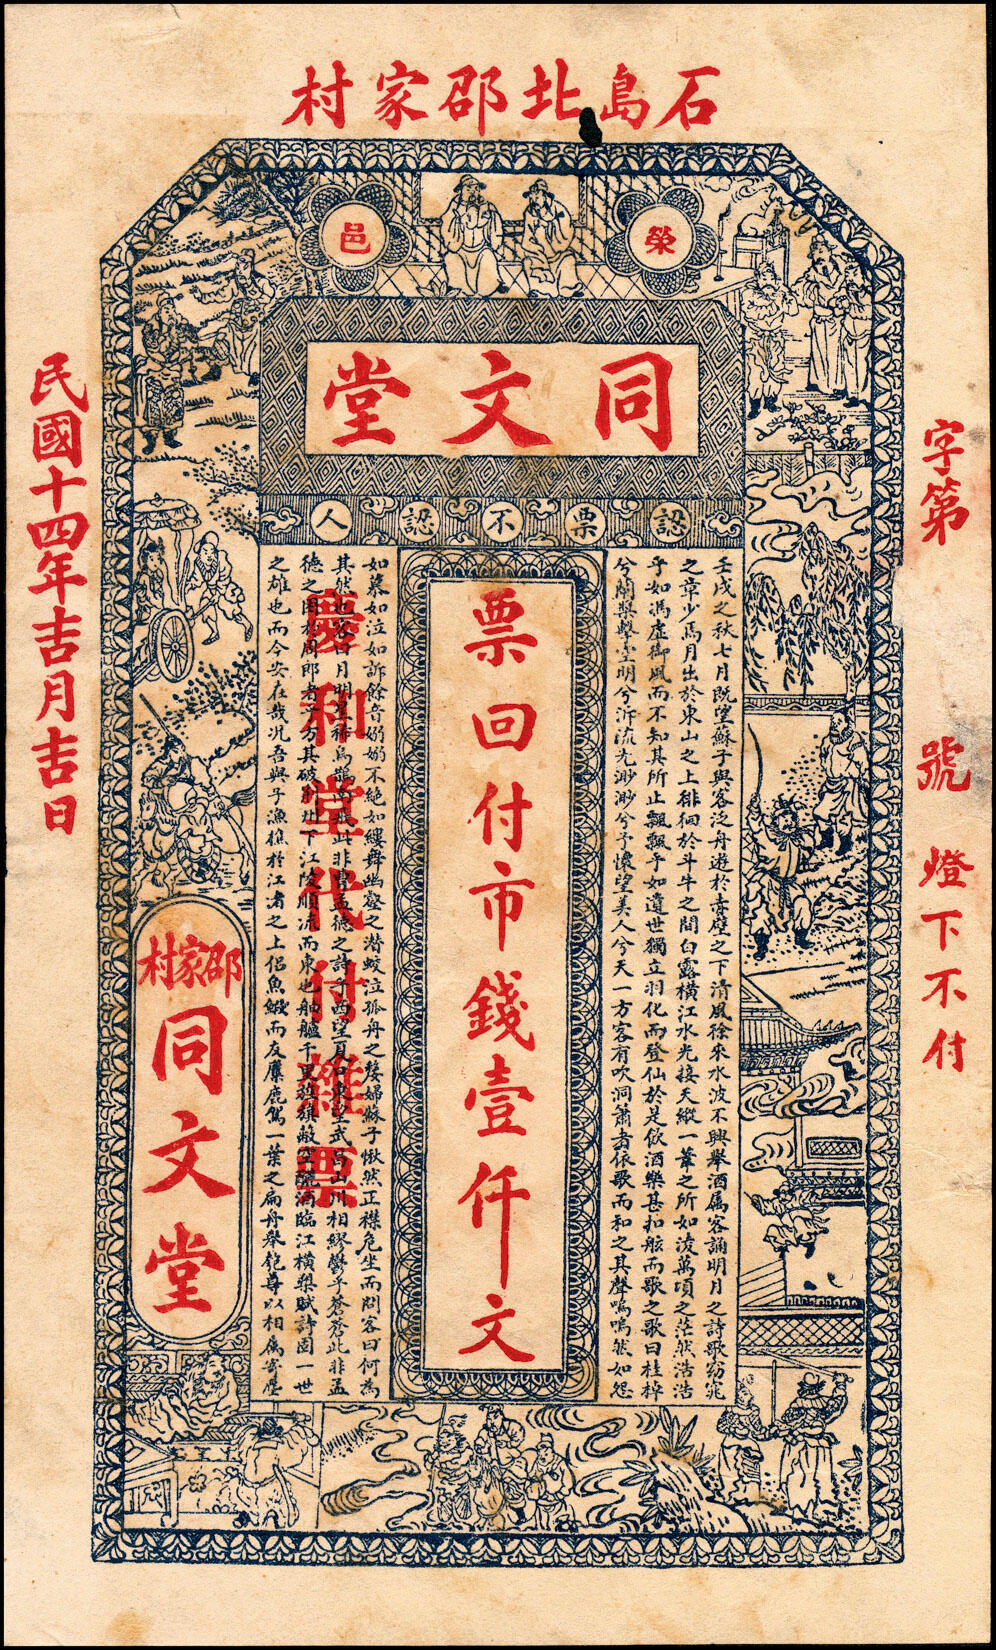 石島北邵家村
榮邑
同文堂
認票不認人
字第 號 燈下不付
壬戌之秋七月既望蘇子與客泛舟遊於赤壁之下清風徐來水波不興舉酒属客誦明月之詩歌窈窕
之章少焉月出於東山之上徘徊於斗牛之間白露横江水光接天縱一葦之所如凌萬頃之茫然浩浩
乎如馮虛御風而不知其所止飄飄乎如遺世獨立羽化而登仙於是飲酒樂甚扣舷而歌之歌曰桂棹
兮蘭槳擊空明兮泝流光渺渺兮予懷望美人兮天一方客有吹洞簫者依歌而和之其聲嗚嗚然如怨
票回付市錢壹仟文
如慕如泣如訴餘音嫋嫋不絶如縷舞幽壑之潜蛟泣孤舟之嫠婦蘇子愀然正襟危坐而問客曰何為
其然也客曰月明星稀烏鵲南飛此非曹孟德之詩乎西望夏口東望武昌山川相繆鬱乎蒼蒼此非孟
德之困於周郎者乎方其破荆州下江陵順流而東也舳艫千里旌旗蔽空釃酒臨江横槊賦詩固一世
之雄也而今安在哉况吾與子漁樵於江渚之上侣魚鰕而友麋鹿駕一葉之扁舟舉匏尊以相属寄蜉
慶和堂代付雜票
邵家村
同文堂
民國十四年吉月吉日